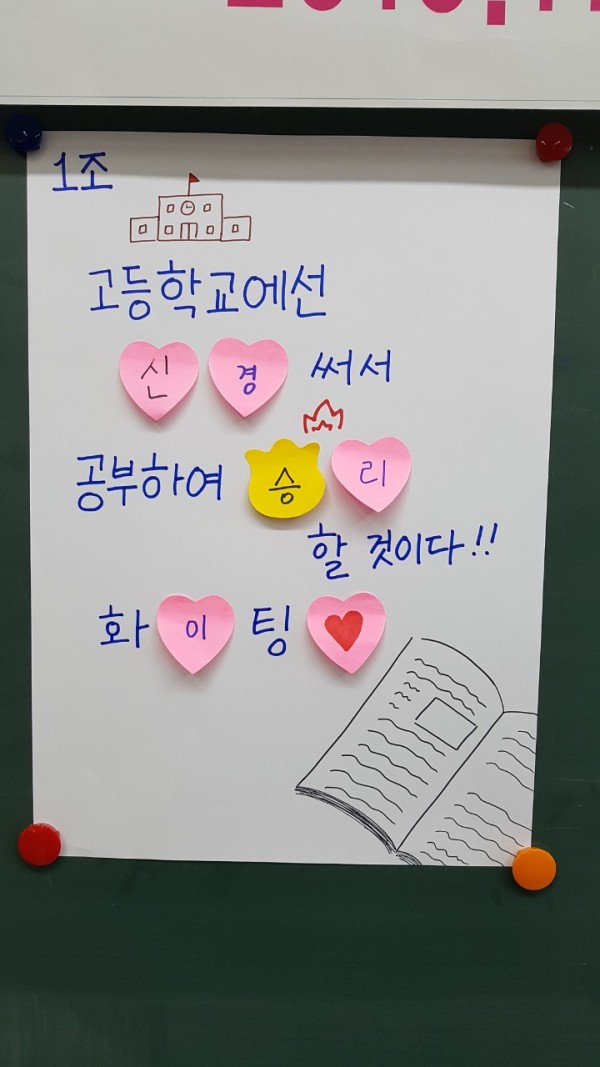 1조
고등학교에선
신경 써서
공부하여 승리
할 것이다!!
화이팅